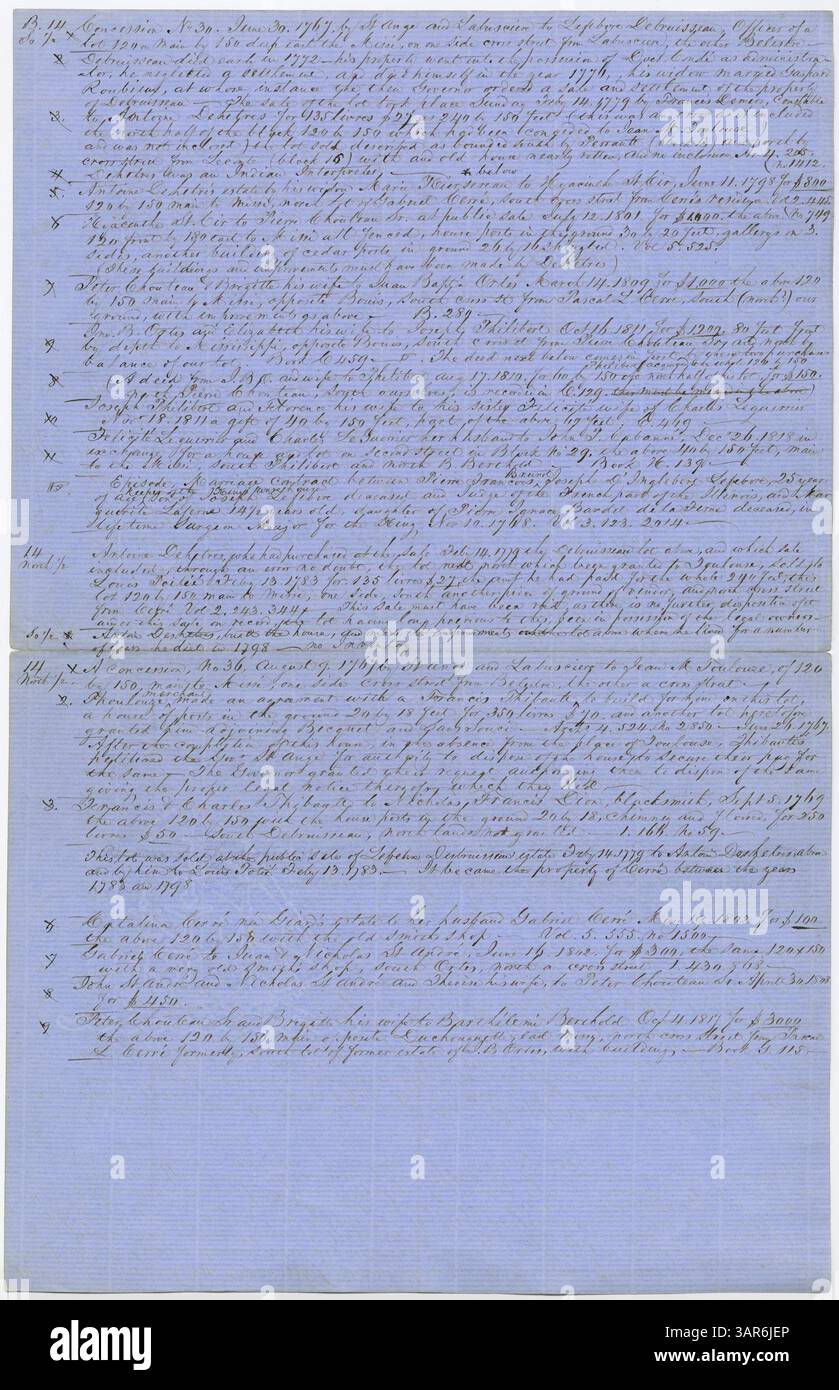 B. 14 Concession No 30. June 30. 1767. by St Ange and Labuscière to Lefebvre Debruisseau, Officer of a
So ½ lot 120 on Main by 150 deep east the Missi, on one side cross street from Labuscière, the other Belestre
2. Debruisseau died early in 1772 — his property went into the possession of as administra-
tor, he neglected a settlement, and died himself in the year 1776, his widow married Gaspar
Roubieu, at whose instance the then Governor orders a sale and settlement of the property
3. of Debruisseau — The sale of the lot took place Sunday Feby 14. 1779 by Francis Demers, Constable
to Antoine Dehetres for 135 livres $27 — 240 by 150 feet (this was an error as it included
the north half of the block, 120 by 150 which had been conceded to Jean M. Toulouse
and was not included) the lot sold, described as bounded south by and north by
cross street from Lecompte (block 15) with and old house nearly rotten, and no inclosure No 4. 205
4. Dehetres was an Indian Interpreter, below n. 1412
5. Antoine Dehetres estate by his widow Maria to Hyacinthe St. Cir, June 11. 1798 for $800
120 by 150 main to Missi, north lot of Gabriel Cerré, south cross street from Vol 2. 445
6 Hyacinthe St. Cir to Pierre Chouteau Sr. at public sale July 12. 1801 for $1000. the above No 749
120 front by 150 east to Missi all fenced, house posts in the ground 30 by 20 feet, gallery on 3
sides, another building of cedar posts in ground 26 by 16 shingled. Vol 5. 525
(These buildings and improvements must have been made by Dehetres)
7 Peter Chouteau & Brigitte his wife to Juan Bapt Ortes March 14. 1809 for $1,000 the above 120
by 150 main by Missi, opposite Bouis, South cross st from Pascal L Cerré, South (north?) our
ground, with improvements as above — B. 289 —
9. Jno. B. Ortes and Elizabeth his wife to Joseph Philibert Oct 16. 1811 for $1200. 80 feet front
by depth to Mississippi, opposite Bouis, South cross st from Pierre Chouteau Sr, north by
balance of our lot Book C 459 — The deed next below comes in first
8 (A deed from J. B. O. and wife to Philibert Aug 17. 1810 for 60 by 150 of north of this lot for $150.
Pierre Chouteau, South ourselves, is recorded in C. 129.
10 Joseph Philibert and Florence his wife to his sister Felicité wife of Charles Lequerrier
Nov 18. 1811 a gift of 40 by 150 feet, part of the above 60 feet. C 449 —
11 Felicité Lequerrier and Charles Lequerrier her husband to John P. Cabanné, Decr 26. 1818 in
exchange for a house and lot on second street in Block No 29. the above 40 by 150 feet, main
to the Missi, south Philibert and north B. Berthold Book H. 139 —
12 Episode. Marriage contract between Pierre Francois Brunot Joseph D'Ingleberg Lefebvre, 25 years
of age (son of the above deceased and Judge of the French part of the Illinois, and Mar-
guerite Laferne 14½ years old, daughter of Pierre Ignace Bardet de la Ferne deceased, in
life time Surgeon Major for the King, Nov 10. 1768. Vol 3. 123. 2014. —
14 Antoine Dehetres, who had purchased at the sale Feby 14. 1779 the Debruisseau lot above, and which sale
North ½ included, through an error no doubt, the lot next north which was granted to Toulouse, sold to
Louis Feby 13. 1783 for 135 livres $27, the amt he had paid for the whole 240 feet, this
lot 120 by 150 main to Missi, one side, South another piece of ground of vendor, and north cross street
from Cerré Vol 2. 243. 344 — This sale must have been void, as there is no further disposition of it
under this sale, on record, the lot having long previous to this, been in possession of the legal owner
So ½ Antoine Deshetres built the house, and made the improvements on the lot above where he lived for a number
of years, he died in 1798 —
14 A concession, No 36. August 9. 1767 by St Ange and Labuscière to Jean M. Toulouse, of 120
North ½ by 150, main to Missi, one side cross street from Belestre, the other a cross street —
2. Toulouse, merchant, made an agreement with a Francis Thibault, to build for him on this lot,
a house of posts in the ground 20 by 18 feet for 350 livres $70. and another lot
granted him adjoining Becquet and Sans Souci —
After the completion of this house, in the absence from the place of Toulouse, Thibault
petitioned the Govr St Ange for authority to dispose of the house, to secure their pay for
the same — The Governor granted their request authorising them to dispose of the same
giving the proper legal notice thereof, which they did —
3. Francis & Charles Thibault to Nicholas Francis Dion, blacksmith, Sept 5. 1769
the above 120 by 150 with the house posts in the ground 20 by 18, chimney and floored, for 250
livres $50 — South Debruisseau, North lands not granted 1. 166 No 59. —
This lot was sold above, public sale of Lefebvre Debruisseau estate Feby 14. 1779 to Antoine Deshetres above
and by him to Louis Feby 13. 1783 — It became the property of Cerré between the years
1783 and 1798
6 Catalina Cerré née Giard's estate to her husband Gabriel Cerré May 1802. for $100
the above 120 by 150 with the old smiths shop. Vol. 5. 555. no 1500
7 Gabriel Cerré to Juan & Nicholas St André, June 16. 1802. for $300, the same 120 x 150
with a very old smiths shop, South Ortes, north a cross street —
8 John St André and Nicholas St André and Therese his wife, to Peter Chouteau Sr April 30 1808
for $450.
9 Peter Chouteau Sr and Brigitte his wife to Barthelemi Berthold Oct 4. 1817 for $3000
the above 120 by 150 main opposite Duchouquette, Bad. Jeune, north cross street from Pascal
L. Cerré formerly, south lot of former estate of J. B. Ortes, with buildings — Book G. 115 —
a alamy
alamy
Image ID: 3AR6JEP
www.alamy.com